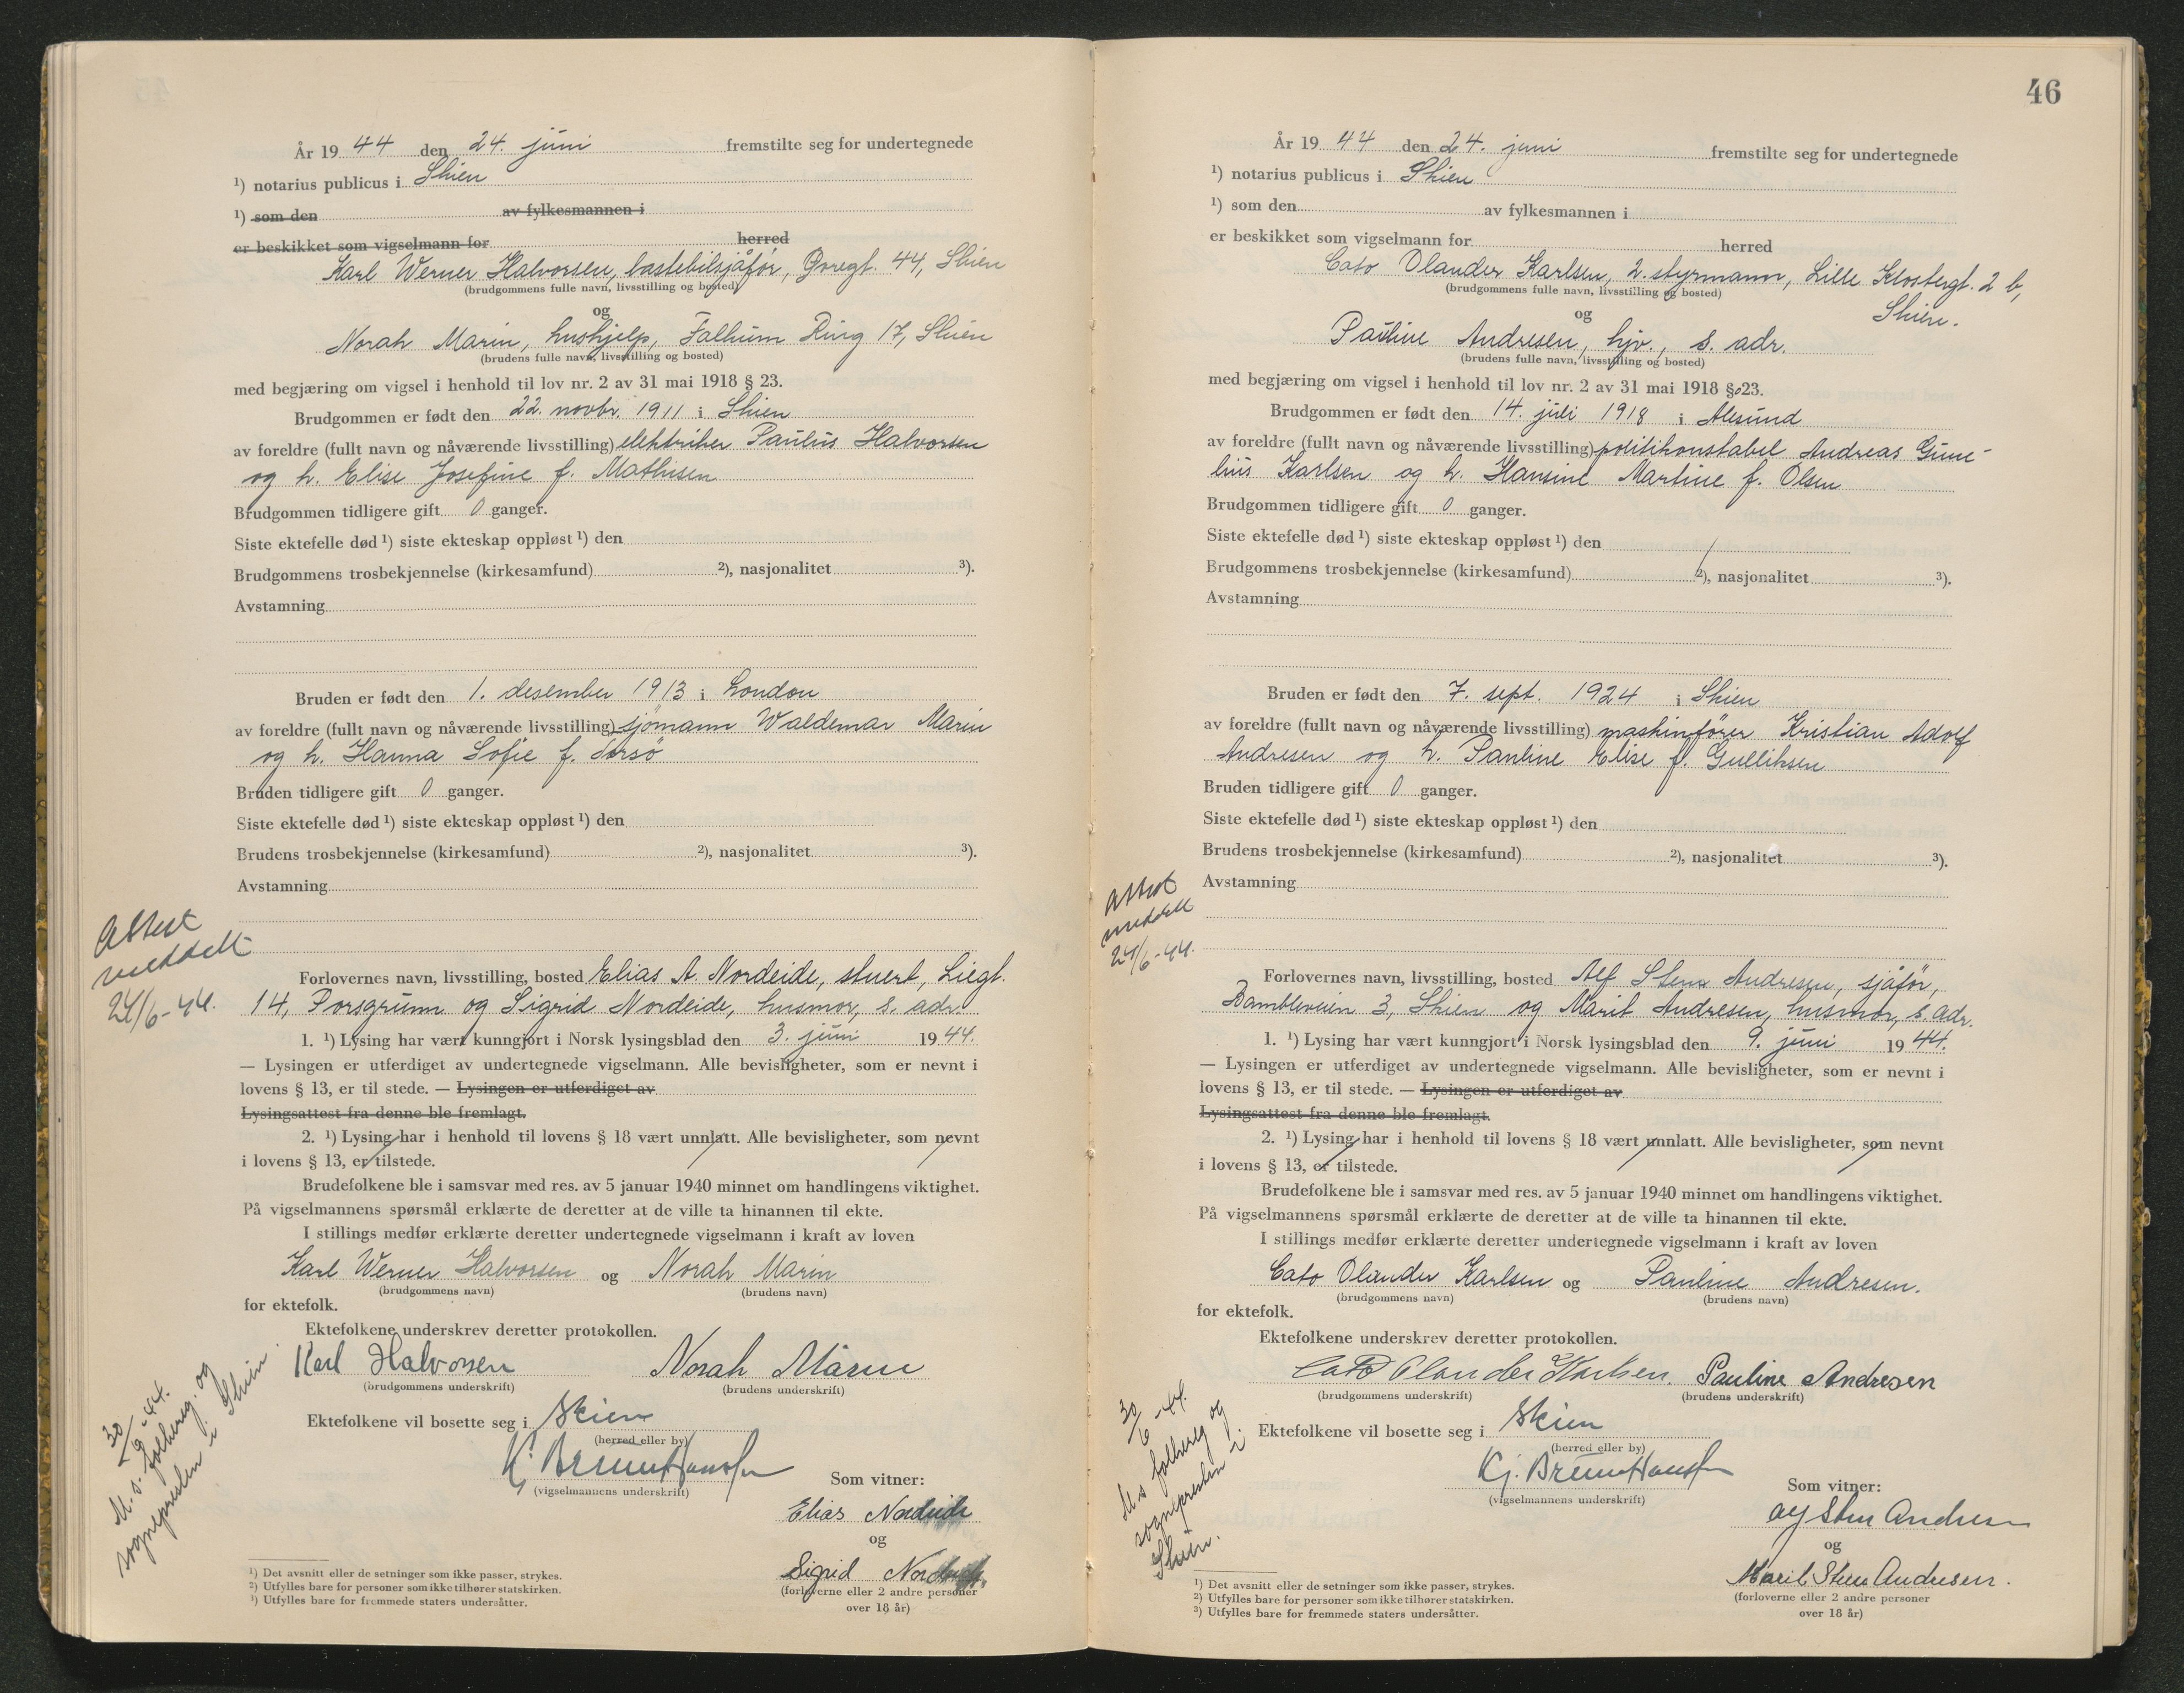 År 19 44 den 24. juni fremstilte seg for undertegnede
¹) notarius publicus i Skien
¹) som den av fylkesmannen i
er beskikket som vigselmann for herred
Karl Werner Halvorsen, lastebilsjåfør, 44, Skien
(brudgommens fulle navn, livsstilling og bosted)
og
Norah Marin, hushjelp, Falkum Ring 17, Skien
(brudens fulle navn, livsstilling og bosted)
med begjæring om vigsel i henhold til lov nr. 2 av 31 mai 1918 § 23.
Brudgommen er født den 22. novbr. 1911 i Skien
av foreldre (fullt navn og nåværende livsstilling) elektriker Paulus Halvorsen
og h. Elise Josefine f. Mathisen
Brudgommen tidligere gift 0 ganger.
Siste ektefelle død ¹) siste ekteskap oppløst ¹) den
Brudgommens trosbekjennelse (kirkesamfund) ²), nasjonalitet ³).
Avstamning
Bruden er født den 1. desember 1913 i London
av foreldre (fullt navn og nåværende livsstilling) sjømann Waldemar Marin
og h. Hanna Sofie f.
Bruden tidligere gift 0 ganger.
Siste ektefelle død ¹) siste ekteskap oppløst ¹) den
Brudens trosbekjennelse (kirkesamfund) ²), nasjonalitet ³).
Avstamning
Attest
meddelt
24/6-44.
Forlovernes navn, livsstilling, bosted Elias A. Nordeide, stuert, Liegt.
14, Porsgrunn og Sigrid Nordeide, husmor, s. adr.
1. ¹) Lysing har vært kunngjort i Norsk lysingsblad den 3. juni 19 44.
— Lysingen er utferdiget av undertegnede vigselmann. Alle bevisligheter, som er nevnt i
lovens § 13, er til stede. — Lysingen er utferdiget av
Lysingsattest fra denne ble fremlagt.
2. ¹) Lysing har i henhold til lovens § 18 vært unnlatt. Alle bevisligheter, som nevnt
i lovens § 13, er tilstede.
Brudefolkene ble i samsvar med res. av 5 januar 1940 minnet om handlingens viktighet.
På vigselmannens spørsmål erklærte de deretter at de ville ta hinannen til ekte.
I stillings medfør erklærte deretter undertegnede vigselmann i kraft av loven
Karl Werner Halvorsen og Norah Marin
(brudgommens navn) (brudens navn)
for ektefolk.
Ektefolkene underskrev deretter protokollen.
Karl Halvorsen Norah Marin
(brudgommens underskrift) (brudens underskrift)
Ektefolkene vil bosette seg i Skien
(herred eller by)
30/6-44.
M. s. folkereg. og
sognepresten i Skien.
(vigselmannens underskrift)
Som vitner:
Elias Nordeide
og
Sigrid Nordeide
(forloverne eller 2 andre personer
over 18 år)
¹) Det avsnitt eller de setninger som ikke passer, strykes.
²) Utfylles bare for personer som ikke tilhører statskirken.
³) Utfylles bare for fremmede staters undersåtter.
46
År 19 44 den 24. juni fremstilte seg for undertegnede
¹) notarius publicus i Skien
¹) som den av fylkesmannen i
er beskikket som vigselmann for herred
Cato Olander Karlsen, 2. styrmann, Lille Klostergt. 2 b,
(brudgommens fulle navn, livsstilling og bosted)
og Skien.
Pauline Andresen, hjv., s. adr.
(brudens fulle navn, livsstilling og bosted)
med begjæring om vigsel i henhold til lov nr. 2 av 31 mai 1918 § 23.
Brudgommen er født den 14. juli 1918 i Ålesund
av foreldre (fullt navn og nåværende livsstilling) politikonstabel Andreas Gune-
lius Karlsen og h. Hansine Martine f. Olsen
Brudgommen tidligere gift 0 ganger.
Siste ektefelle død ¹) siste ekteskap oppløst ¹) den
Brudgommens trosbekjennelse (kirkesamfund) ²), nasjonalitet ³).
Avstamning
Bruden er født den 7. sept. 1924 i Skien
av foreldre (fullt navn og nåværende livsstilling) maskinfører Kristian Adolf
Andresen og h. Pauline Elise f. Gulliksen
Bruden tidligere gift 0 ganger.
Siste ektefelle død ¹) siste ekteskap oppløst ¹) den
Brudens trosbekjennelse (kirkesamfund) ²), nasjonalitet ³).
Avstamning
Attest
meddelt
24/6-44.
Forlovernes navn, livsstilling, bosted Alf Stenn Andresen, sjåfør,
Bambleveien 3, Skien og Marit Andresen, husmor, s. adr.
1. ¹) Lysing har vært kunngjort i Norsk lysingsblad den 9. juni 19 44.
— Lysingen er utferdiget av undertegnede vigselmann. Alle bevisligheter, som er nevnt i
lovens § 13, er til stede. — Lysingen er utferdiget av
Lysingsattest fra denne ble fremlagt.
2. ¹) Lysing har i henhold til lovens § 18 vært unnlatt. Alle bevisligheter, som nevnt
i lovens § 13, er tilstede.
Brudefolkene ble i samsvar med res. av 5 januar 1940 minnet om handlingens viktighet.
På vigselmannens spørsmål erklærte de deretter at de ville ta hinannen til ekte.
I stillings medfør erklærte deretter undertegnede vigselmann i kraft av loven
Cato Olander Karlsen og Pauline Andresen.
(brudgommens navn) (brudens navn)
for ektefolk.
Ektefolkene underskrev deretter protokollen.
Cato Olander Karlsen. Pauline Andresen
(brudgommens underskrift) (brudens underskrift)
Ektefolkene vil bosette seg i Skien
(herred eller by)
30/6-44.
M. s. folkereg og
sognepresten i
Skien.
(vigselmannens underskrift)
Som vitner:
Alf Stenn Andresen
og
Marit Stenn Andresen.
(forloverne eller 2 andre personer
over 18 år)
¹) Det avsnitt eller de setninger som ikke passer, strykes.
²) Utfylles bare for personer som ikke tilhører statskirken.
³) Utfylles bare for fremmede staters undersåtter.